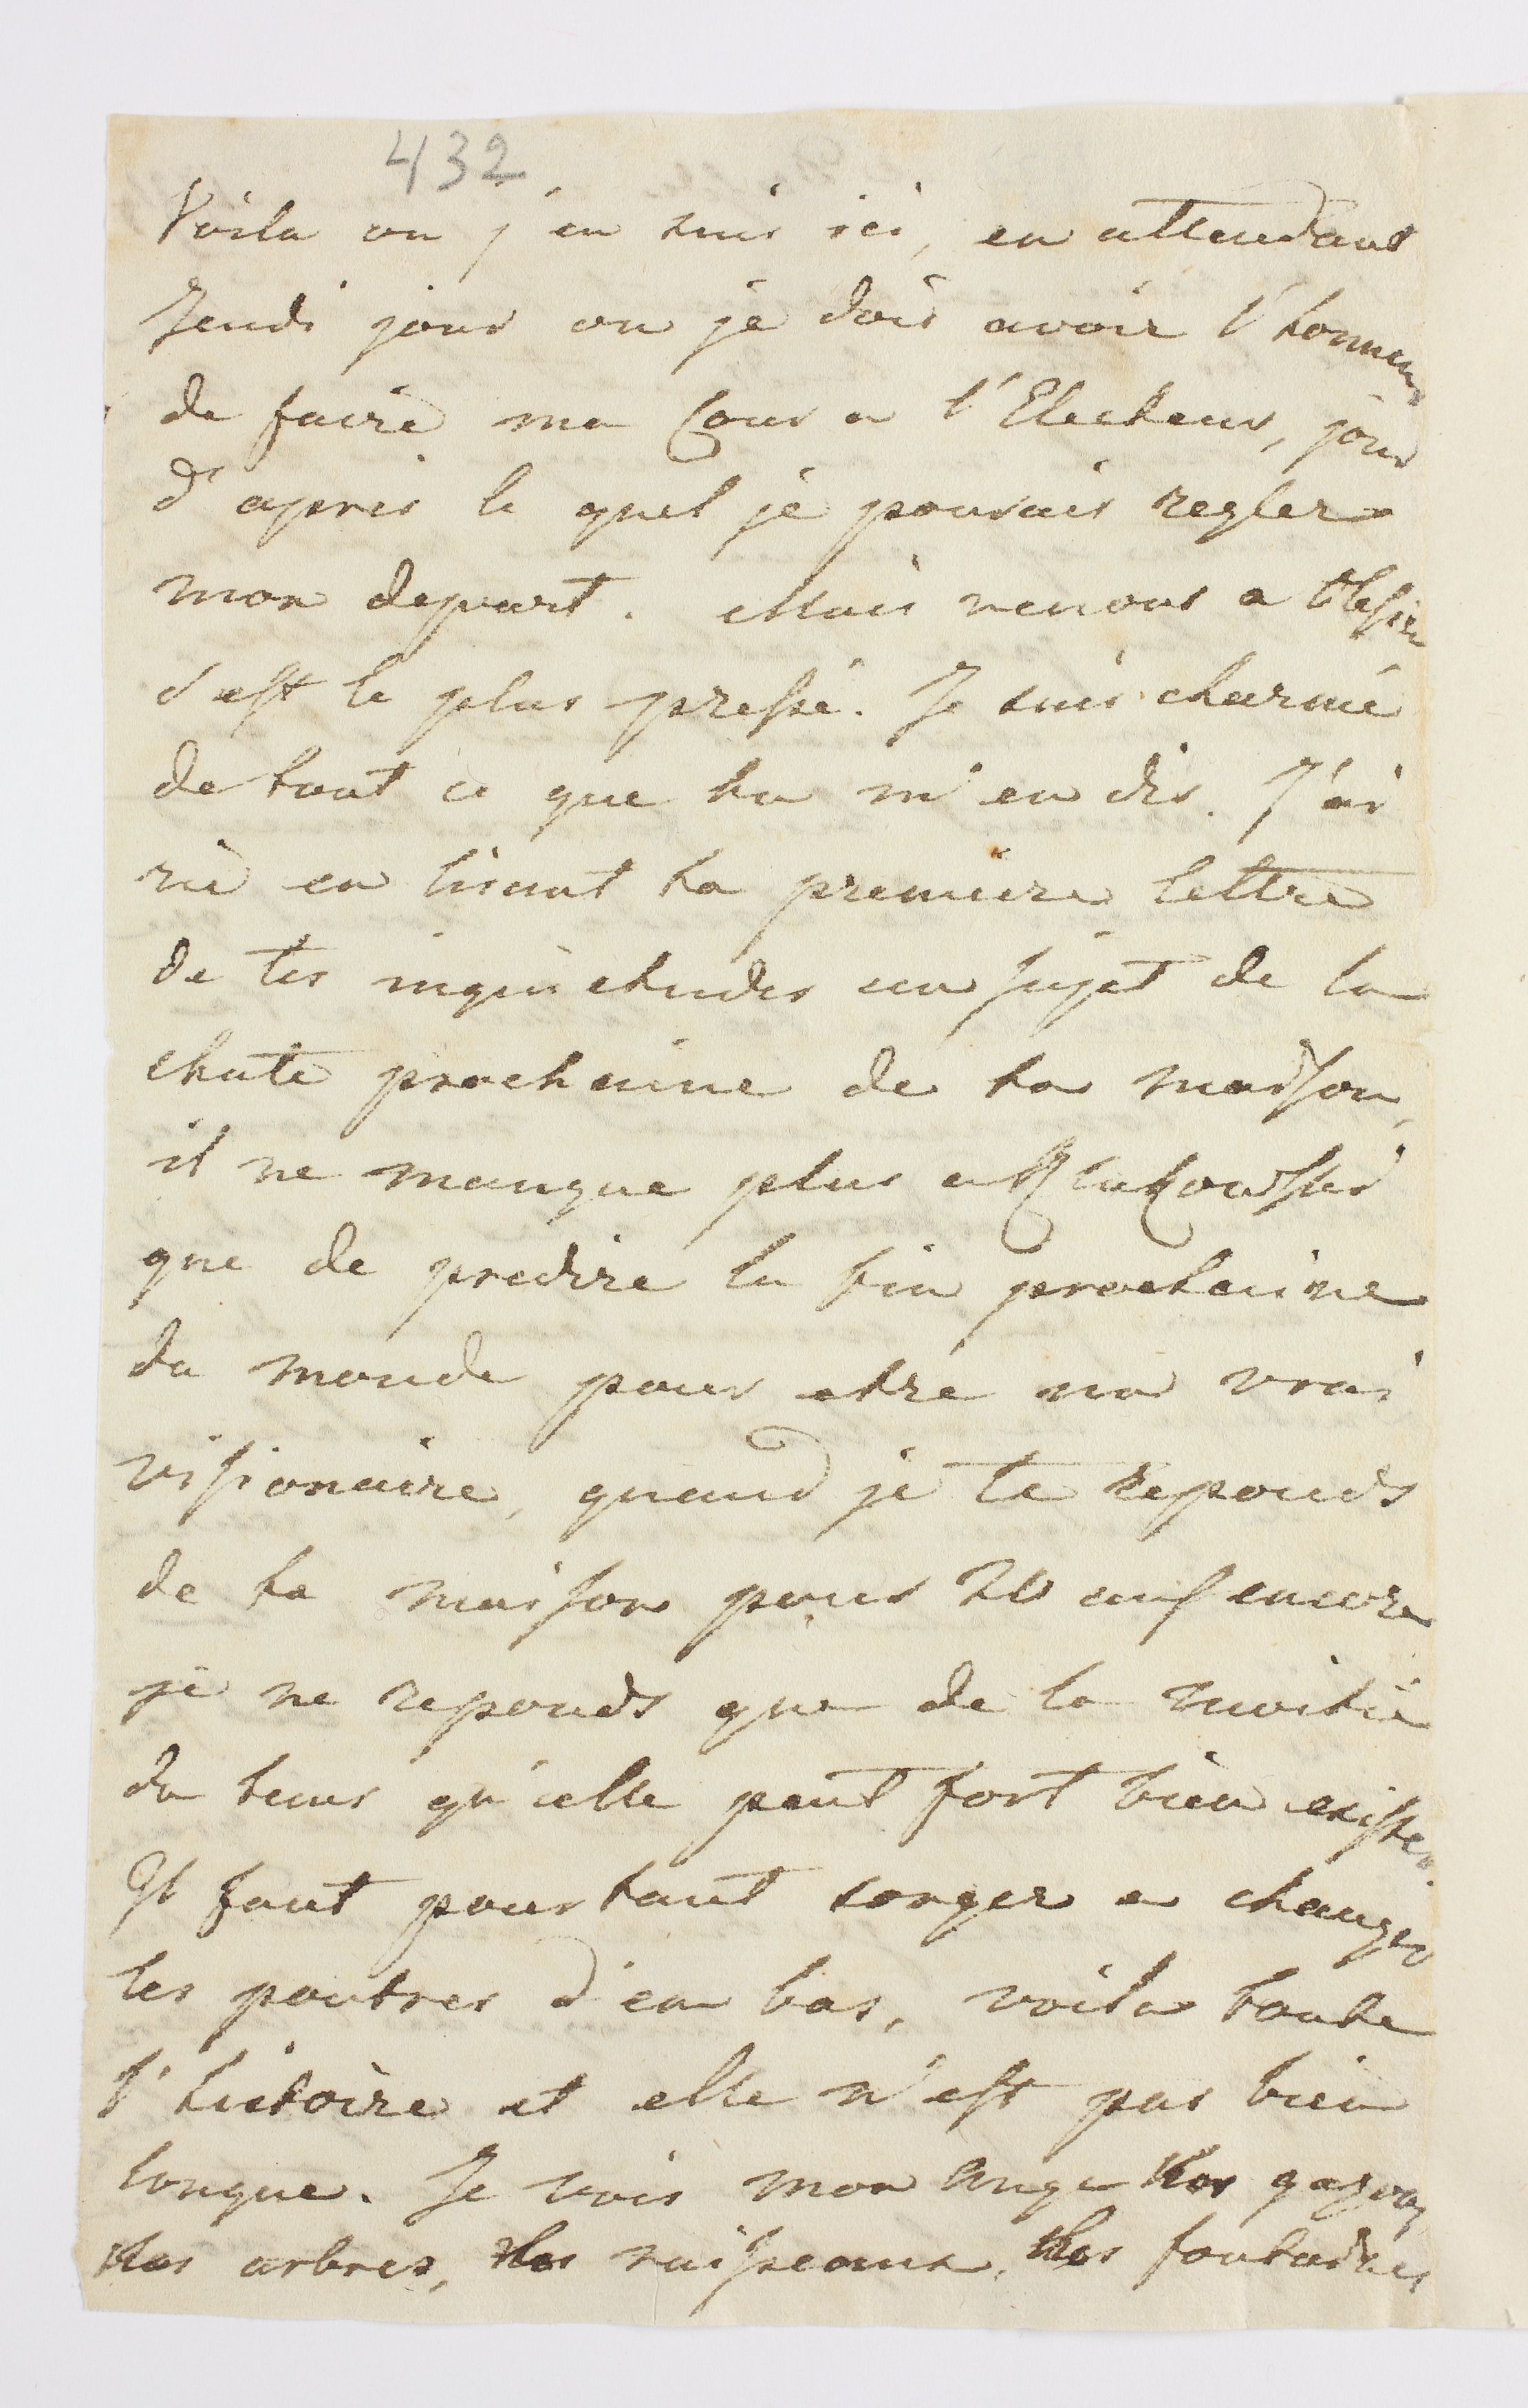 432
Voila ou j'en suis ici, en attendant
Jeudi jour ou je dois avoir l'honneur
de faire ma Cour a l'Electeur, jour
d'apres le quel je pourais regler
mon depart. Mais venons a
c'est le plus pressé. Je suis charmé
de tout ce que tu m'en dis. J'ai
rie en lisant ta premiere lettre
de tes inquietudes au sujet de la
chute prochaine de ta maison,
il ne manque plus a
que de predire la fin prochaine
du monde pour etre un vrai
visionaire, quand je te reponds
de ta maison pour ans encore
je ne reponds que de la moitié
du tems qu'elle peut fort bien exister.
Il faut pourtant songer a changer
les poutres d'en bas, voila toute
l'histoire et elle n'est pas bien
longue. Je vois mon Ange gazons,
arbres, ruisseaux, fontaines